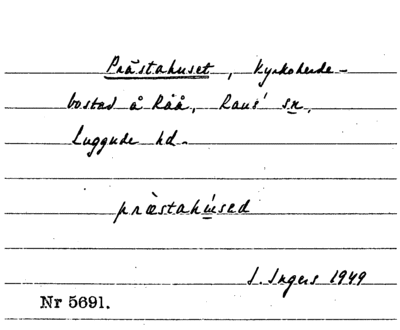 Prästahuset, Kyrkoherde-
bostad å Råå, Raus' sn,
Luggude hd.
præstahúsed
I. Ingers 1949
Nr 5691.